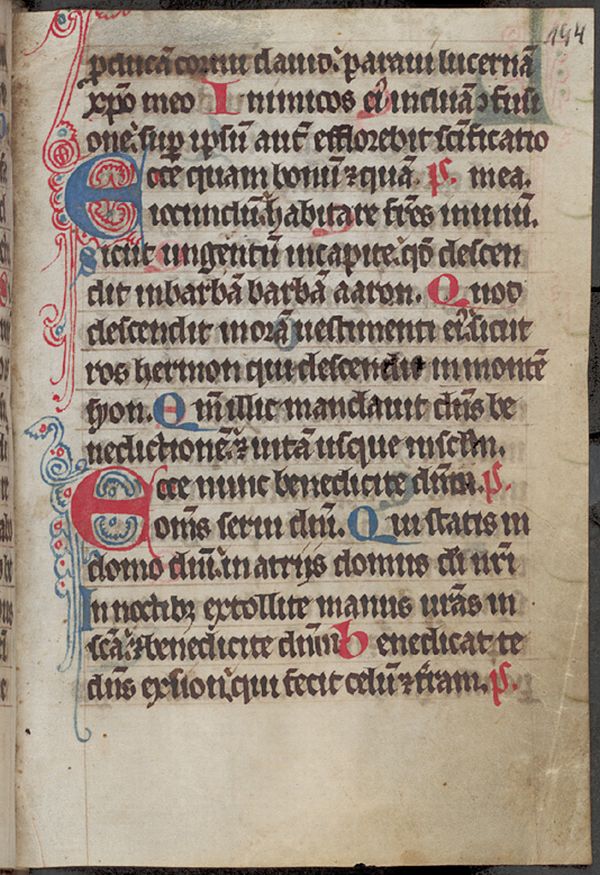 194
p̄ducā cornu dauid: paraui lucernā
xp̄o meo Inimicos eiꝰ induā ↄfusi
one: sup ip̄sū aut̄ efflorebit sc̄ificatio
Ecce quam bonū ⁊ quā ps. mea.
iocundū: habitare fr̄es inunū.
Sicut ungentū incapite: qd̄ descen
dit inbarbā barbā aaron. Quod
descendit inorā uestimenti eiꝰ: sicut
ros hermon qui descendit inmontē
syon. Qm̄ illic mandauit dn̄s be
nedictionē: ⁊ uitā usque insc̄lm.
Ecce nunc benedicite dn̄m. ps.
om̄s serui dn̄i. Qui statis in
domo dn̄i: in atrijs domus di nr̄i
In noctibꝫ extollite manus ur̄as in
sc̄a: ⁊ benedicite dn̄m Benedicat te
dn̄s exsion: qui fecit celū ⁊ t̄ram. ps.